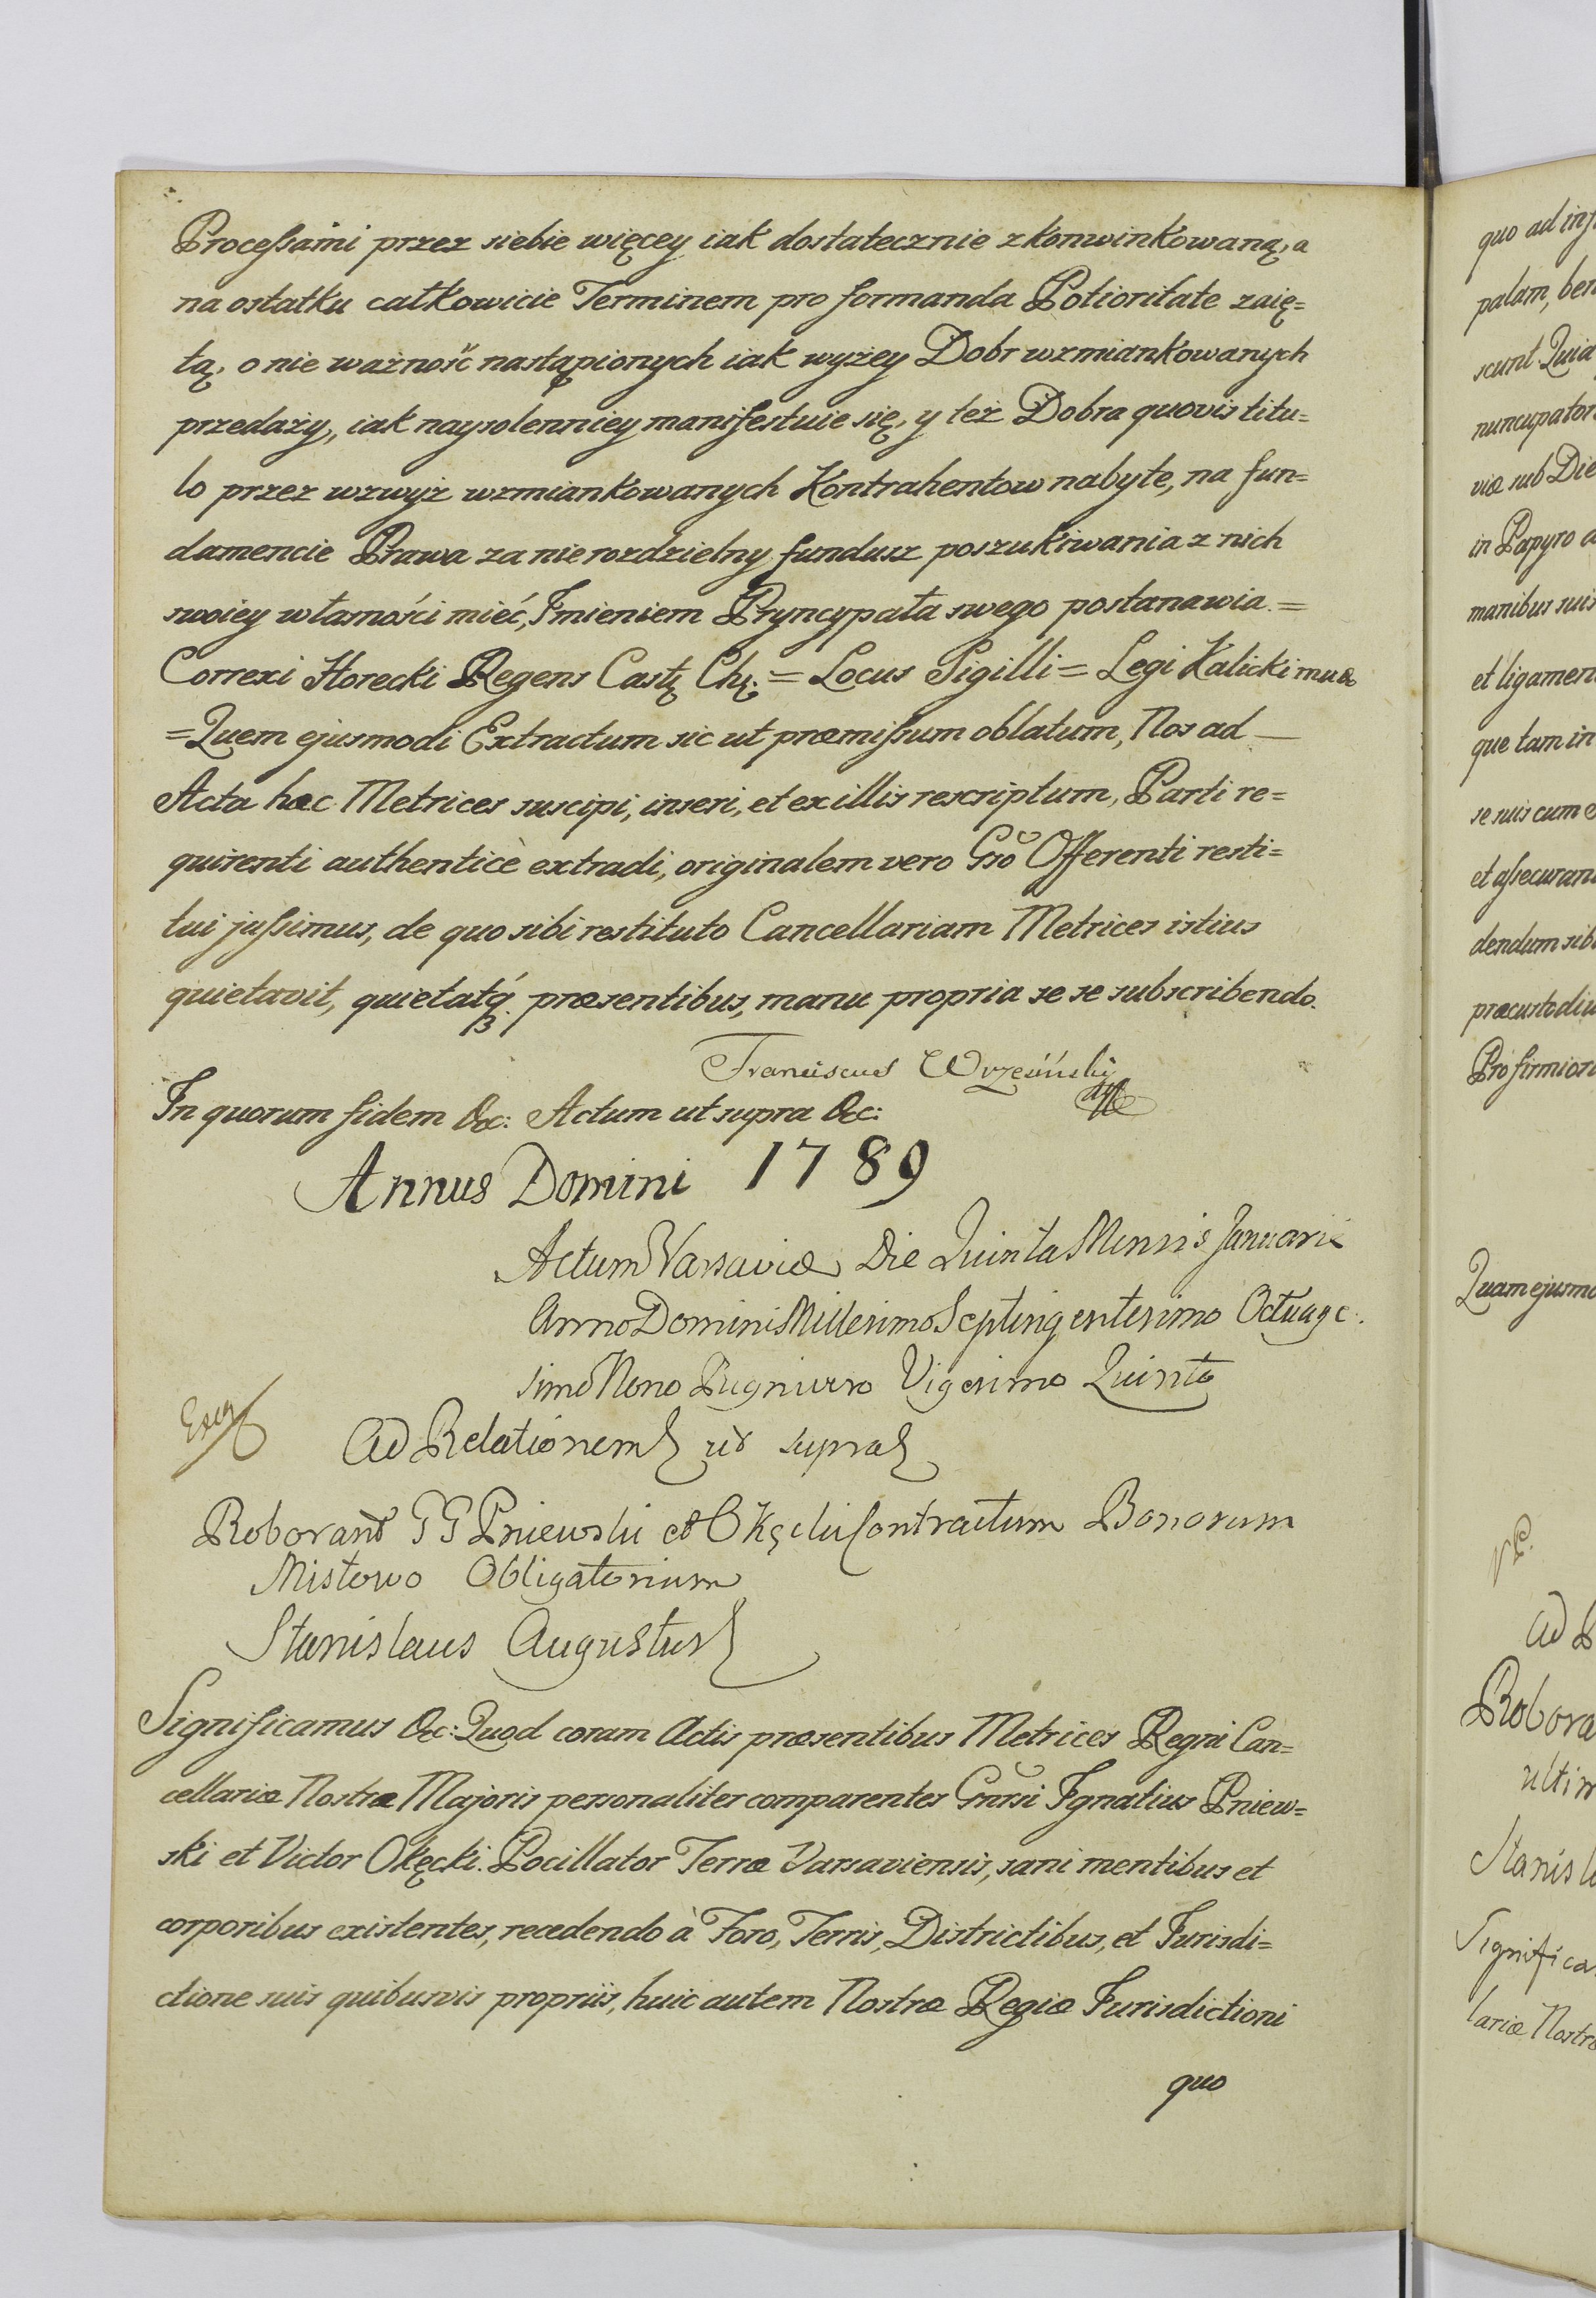 Processami przez siebie więcey iak dostatecznie zkonwinkowaną, a
na ostatku całkowicie Terminem pro formanda Potioritate zaię=
tą, o nie ważność nastąpionych iak wyżey Dobr wzmiankowanych
przedaży, iak naysolenniey manifestuie się, y też Dobra quovis titu=
lo przez wzwyż wzmiankowanych Kontrahentow nabyte, na fun=
damencie Prawa za nierozdzielny fundusz poszukiwania z nich
swoiey własności mieć, Imieniem Pryncypała swego postanawia. =
Correxi Horecki Regens Cast. = Locus Sigilli = Legi Kalicki
= Quem ejusmodi Extractum sic ut præmissum oblatum, Nos ad —
Acta hæc Metrices suscipi, inseri, et ex illis rescriptum, Parti re=
quirenti authenticè extradi, originalem vero Gso Offerenti resti=
tui jussimus, de quo sibi restituto Cancellariam Metrices istius
quietavit, quietatq3. præsentibus, manu propria se se subscribendo.
Franciscus Wrzesiński
In quorum fidem &c: Actum ut supra &c:
Annus Domini 1789
Actum Varsaviæ Die Quinta Mensis Januarii
Anno Domini Millesimo Septingentesimo Octuage.
simo Nono Regni vero Vigesimo Quinto
Ad Relationem ut supra
Roborant GG Pniewski et Okęcki Contractum Bonorum
Mistowo Obligatorium
Stanislaus Augustus
Significamus &c: Quod coram Actis præsentibus Metrices Regni Can=
cellariæ Nostræ Majoris personaliter comparentes Gnrsi Ignatius Pniew=
ski et Victor Okęcki. Pocillator Terræ Varsaviensis, sani mentibus et
corporibus existentes, recedendo à Foro, Terris, Districtibus, et Jurisdi=
ctione suis quibusvis propriis, huic autem Nostræ Regiæ Jurisdictioni
quo
quo ad
palam,
scunt Quia
viæ sub Die
in Papyro
manibus suis
que tam in
se suis cum
dendum
Ad
ultim
Nostræ